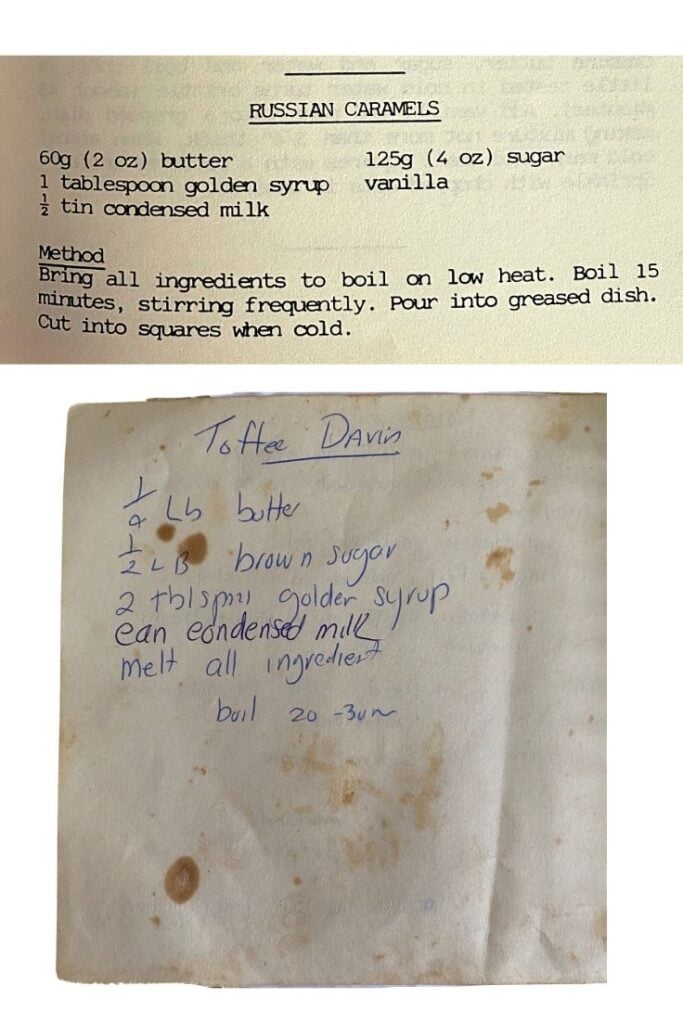 RUSSIAN CARAMELS
60g (2 oz) butter 125g (4 oz) sugar
1 tablespoon golden syrup vanilla
½ tin condensed milk
Method
Bring all ingredients to boil on low heat. Boil 15
minutes, stirring frequently. Pour into greased dish.
Cut into squares when cold.
Toffee Davis
¼ Lb butter
½ LB brown sugar
2 golden syrup
can condensed milk
melt all ingredient
boil 20 -30m